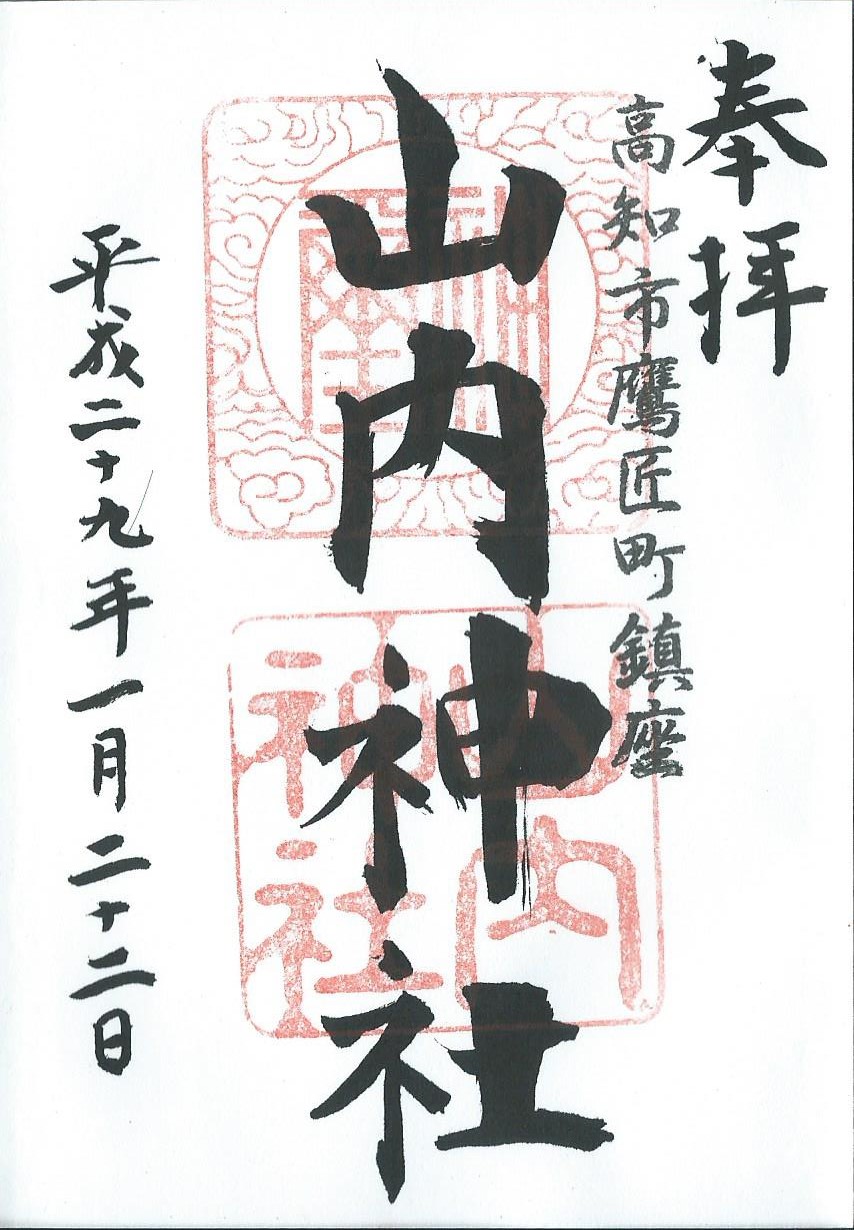 奉拝
高知市鷹匠町鎮座
山内神社
山内
神社
平成二十九年一月二十二日